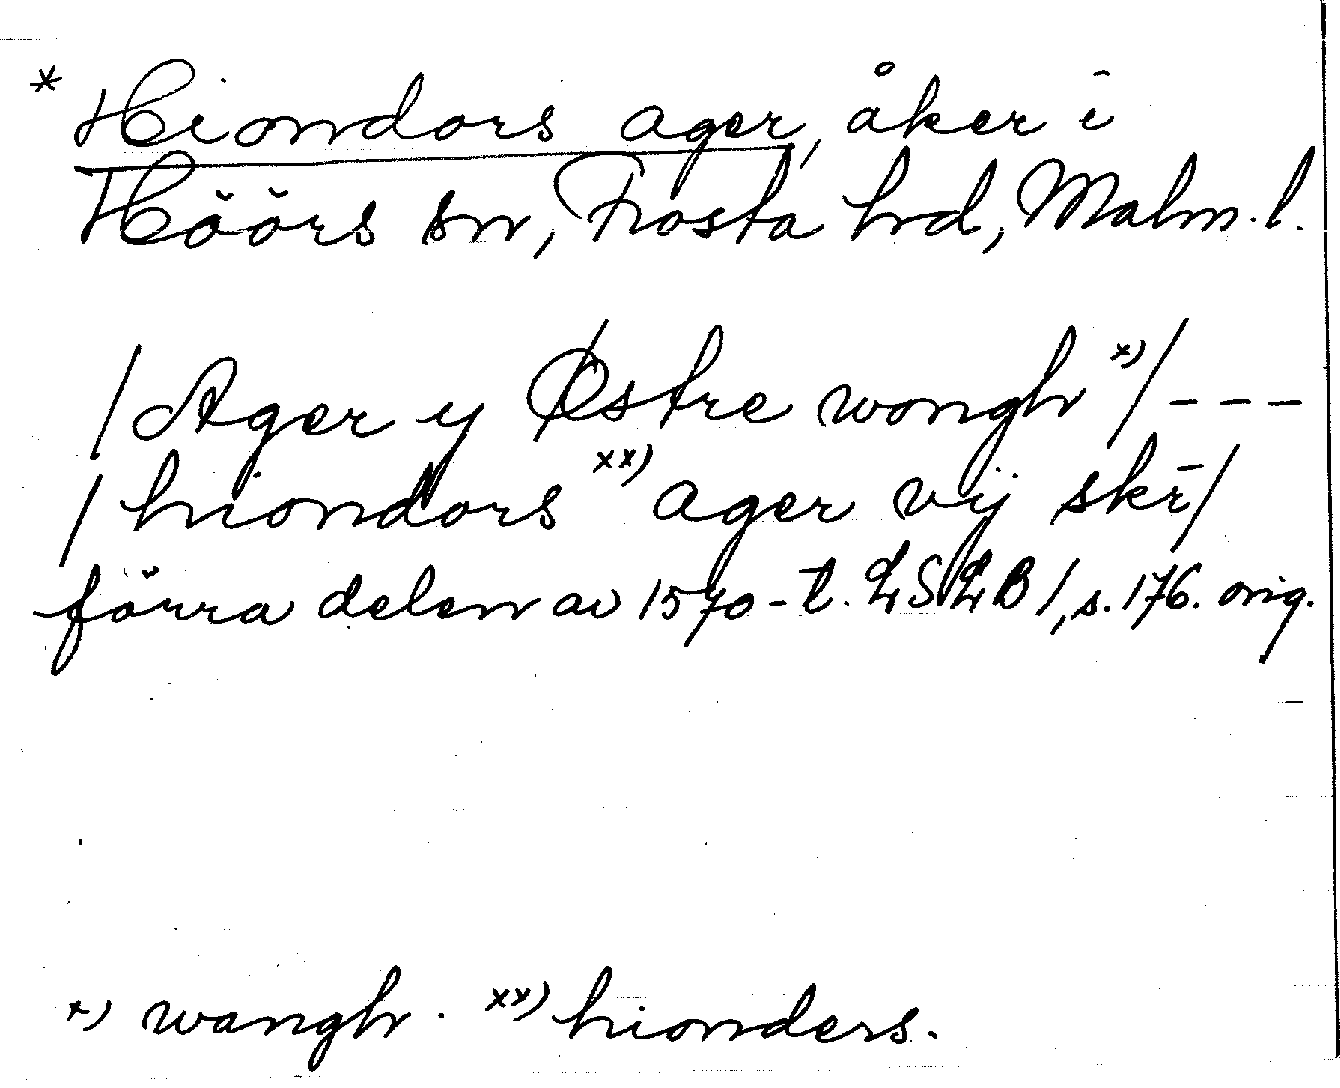 * Hiondors ager, åker i
Höörs sn, Frosta hd, Malm. l.
/Ager y Østre wongh x)/ - - -
/hiondors xx) ager vij skī/
förra delen av 1570-t. LSLB 1, s. 176. orig.
x) wangh. xx) hionders.